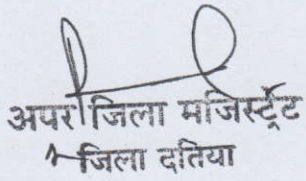 अपर जिला मजिस्ट्रेट
जिला दतिया